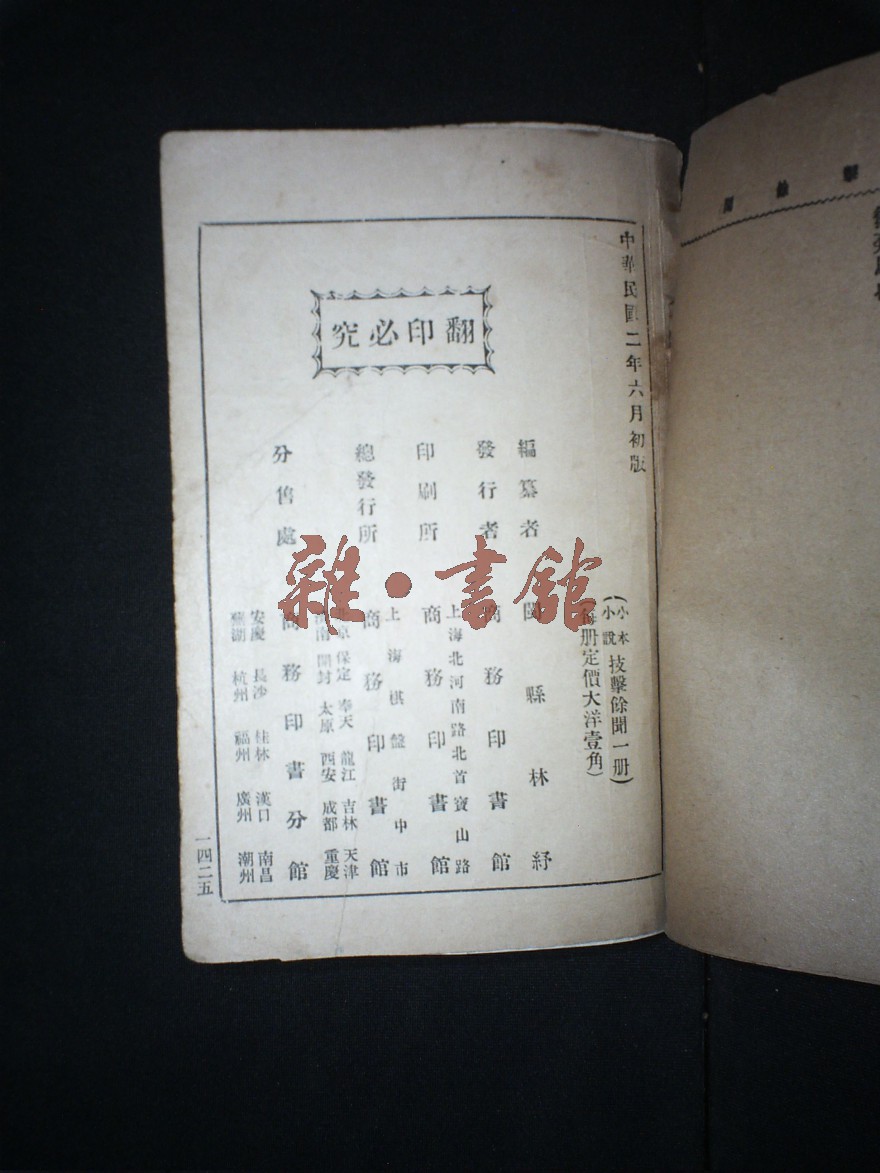 中華民國二年六月初版
(小本小說 技擊餘聞一册)
每册定價大洋壹角)
翻印必究
編纂者 閩縣林紓
發行者 商務印書館
上海北河南路北首寶山路
印刷所 商務印書館
上海棋盤街中市
總發行所 商務印書館
北京 保定 奉天 龍江 吉林 天津
濟南 開封 太原 西安 成都 重慶
分售處 商務印書分館
安慶 長沙 桂林 漢口 南昌
蕪湖 杭州 福州 廣州 潮州
一四二五
雜·書館